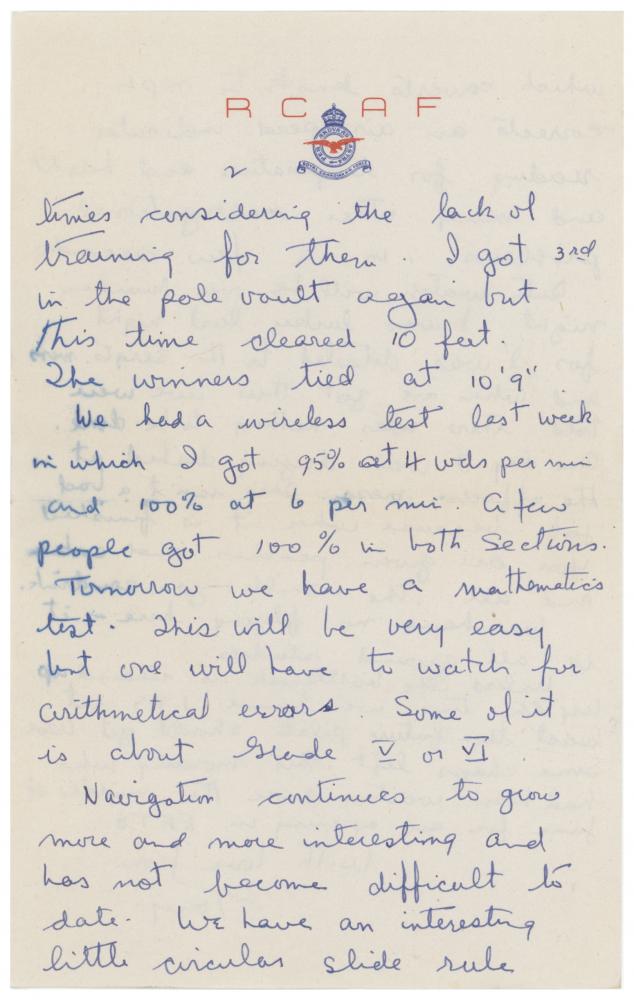 RCAF
2
times considering the lack of
training for them. I got 3rd
in the pole vault again but
this time cleared 10 feet.
The winners tied at 10'9"
We had a wireless test last week
in which I got 95% at 4 wds per min
and 100% at 6 per min. A few
people got 100% in both sections.
Tomorrow we have a mathematics
test. This will be very easy
but one will have to watch for
arithmetical errors. Some of it
is about Grade V or VI.
Navigation continues to grow
more and more interesting and
has not become difficult to
date. We have an interesting
little circular slide rule